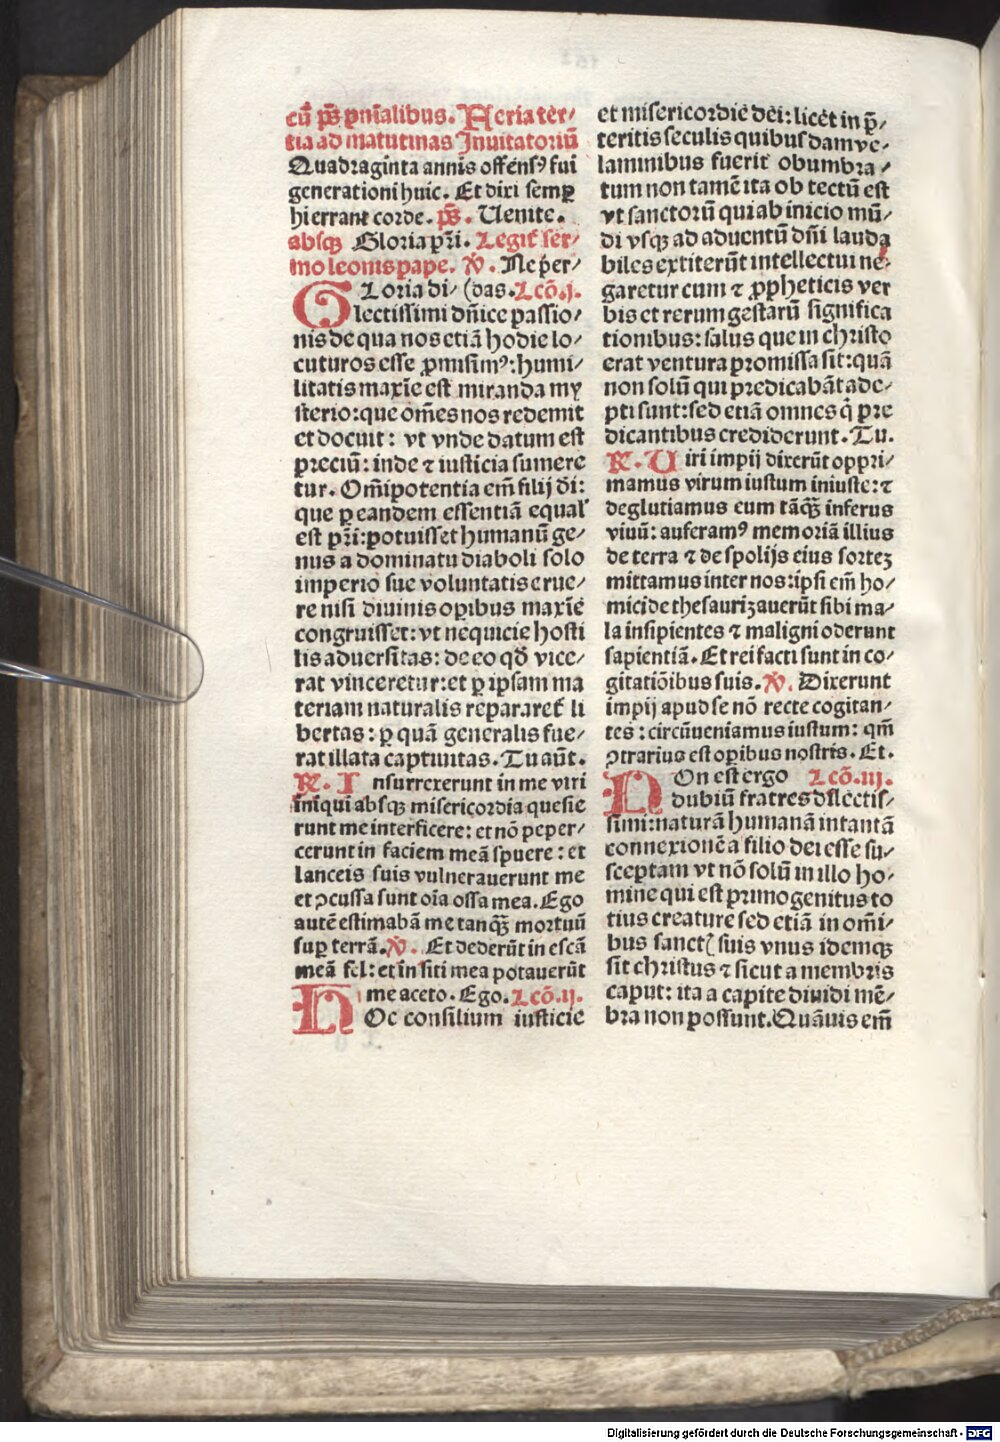 cū p̄s p̄nīalibus. Feria ter/
tia ad matutinas Inuitatoriū
Quadraginta annis offensꝰ fui
generationi huic. Et dixi semꝑ
hi errant corde. p̄s. Uenite.
absqꝫ Gloria pr̄i. Legit̄ ser/
mo leonis pape. ℣. Ne per/
GLoria di/ (das. Lcō.j.
lectissimi dn̄ice passio/
nis de qua nos etiā hodie lo/
cuturos esse ꝓmisimꝰ: humi/
litatis maxīe est miranda my
sterio: que om̄es nos redemit
et docuit: vt vnde datum est
preciū: inde ⁊ iusticia sumere
tur. Om̄ipotentia em̄ filij di:
que ꝑ eandem essentiā equal'
est pr̄i: potuisset humanū ge/
nus a dominatu diaboli solo
imperio sue voluntatis erue/
re nisi diuinis opibus maxīe
congruisset: vt nequicie hosti
lis aduersitas: de eo qd̄ vice/
rat vinceretur: et ꝑ ipsam ma
teriam naturalis repararet̄ li
bertas: ꝑ quā generalis fue/
rat illata captiuitas. Tu aūt.
℟. Insurrexerunt in me viri
iniqui absqꝫ misericordia quesie
runt me interficere: et nō peper/
cerunt in faciem meā spuere: et
lanceis suis vulnerauerunt me
et ꝯcussa sunt oīa ossa mea. Ego
autē estimabā me tanqꝫ̄ mortuū
suꝑ terrā. ℣. Et dederūt in escā
meā fel: et in siti mea potauerūt
me aceto. Ego. Lcō.ij.
HOc consilium iusticie
et misericordie dei: licet in p̄/
teritis seculis quibusdam ve/
laminibus fuerit obumbra/
tum non tamē ita ob tectū est
vt sanctorū qui ab inicio mū/
di vsqꝫ ad aduentū dn̄i lauda
biles extiterūt intellectui ne/
garetur cum ⁊ ꝓpheticis ver
bis et rerum gestarū significa
tionibus: salus que in christo
erat ventura promissa sit: quā
non solū qui predicabāt ade/
pti sunt: sed etiā omnes q̄ pre
dicantibus crediderunt. Tu.
℟. Uiri impij dixerūt oppri/
mamus virum iustum iniuste: ⁊
deglutiamus eum tāqꝫ̄ inferus
viuū: auferamꝰ memoriā illius
de terra ⁊ de spolijs eius sortez
mittamus inter nos: ipsi em̄ ho/
micide thesaurizauerūt sibi ma/
la insipientes ⁊ maligni oderunt
sapientiā. Et rei facti sunt in co/
gitatiōibus suis. ℣. Dixerunt
impij apud se nō recte cogitan/
tes: circūueniamus iustum: qm̄
ꝯtrarius est opibus nostris. Et.
NOn est ergo Lcō.iij.
dubiū fratres dilectis/
simi: naturā humanā in tantā
connexionē a filio dei esse su/
sceptam vt nō solū in illo ho/
mine qui est primogenitus to
tius creature sed etiā in om̄i/
bus sanctꝭ suis vnus idemqꝫ
sit christus ⁊ sicut a membris
caput: ita a capite diuidi mē/
bra non possunt. Quāuis em̄
Digitalisierung gefördert durch die Deutsche Forschungsgemeinschaft - DFG